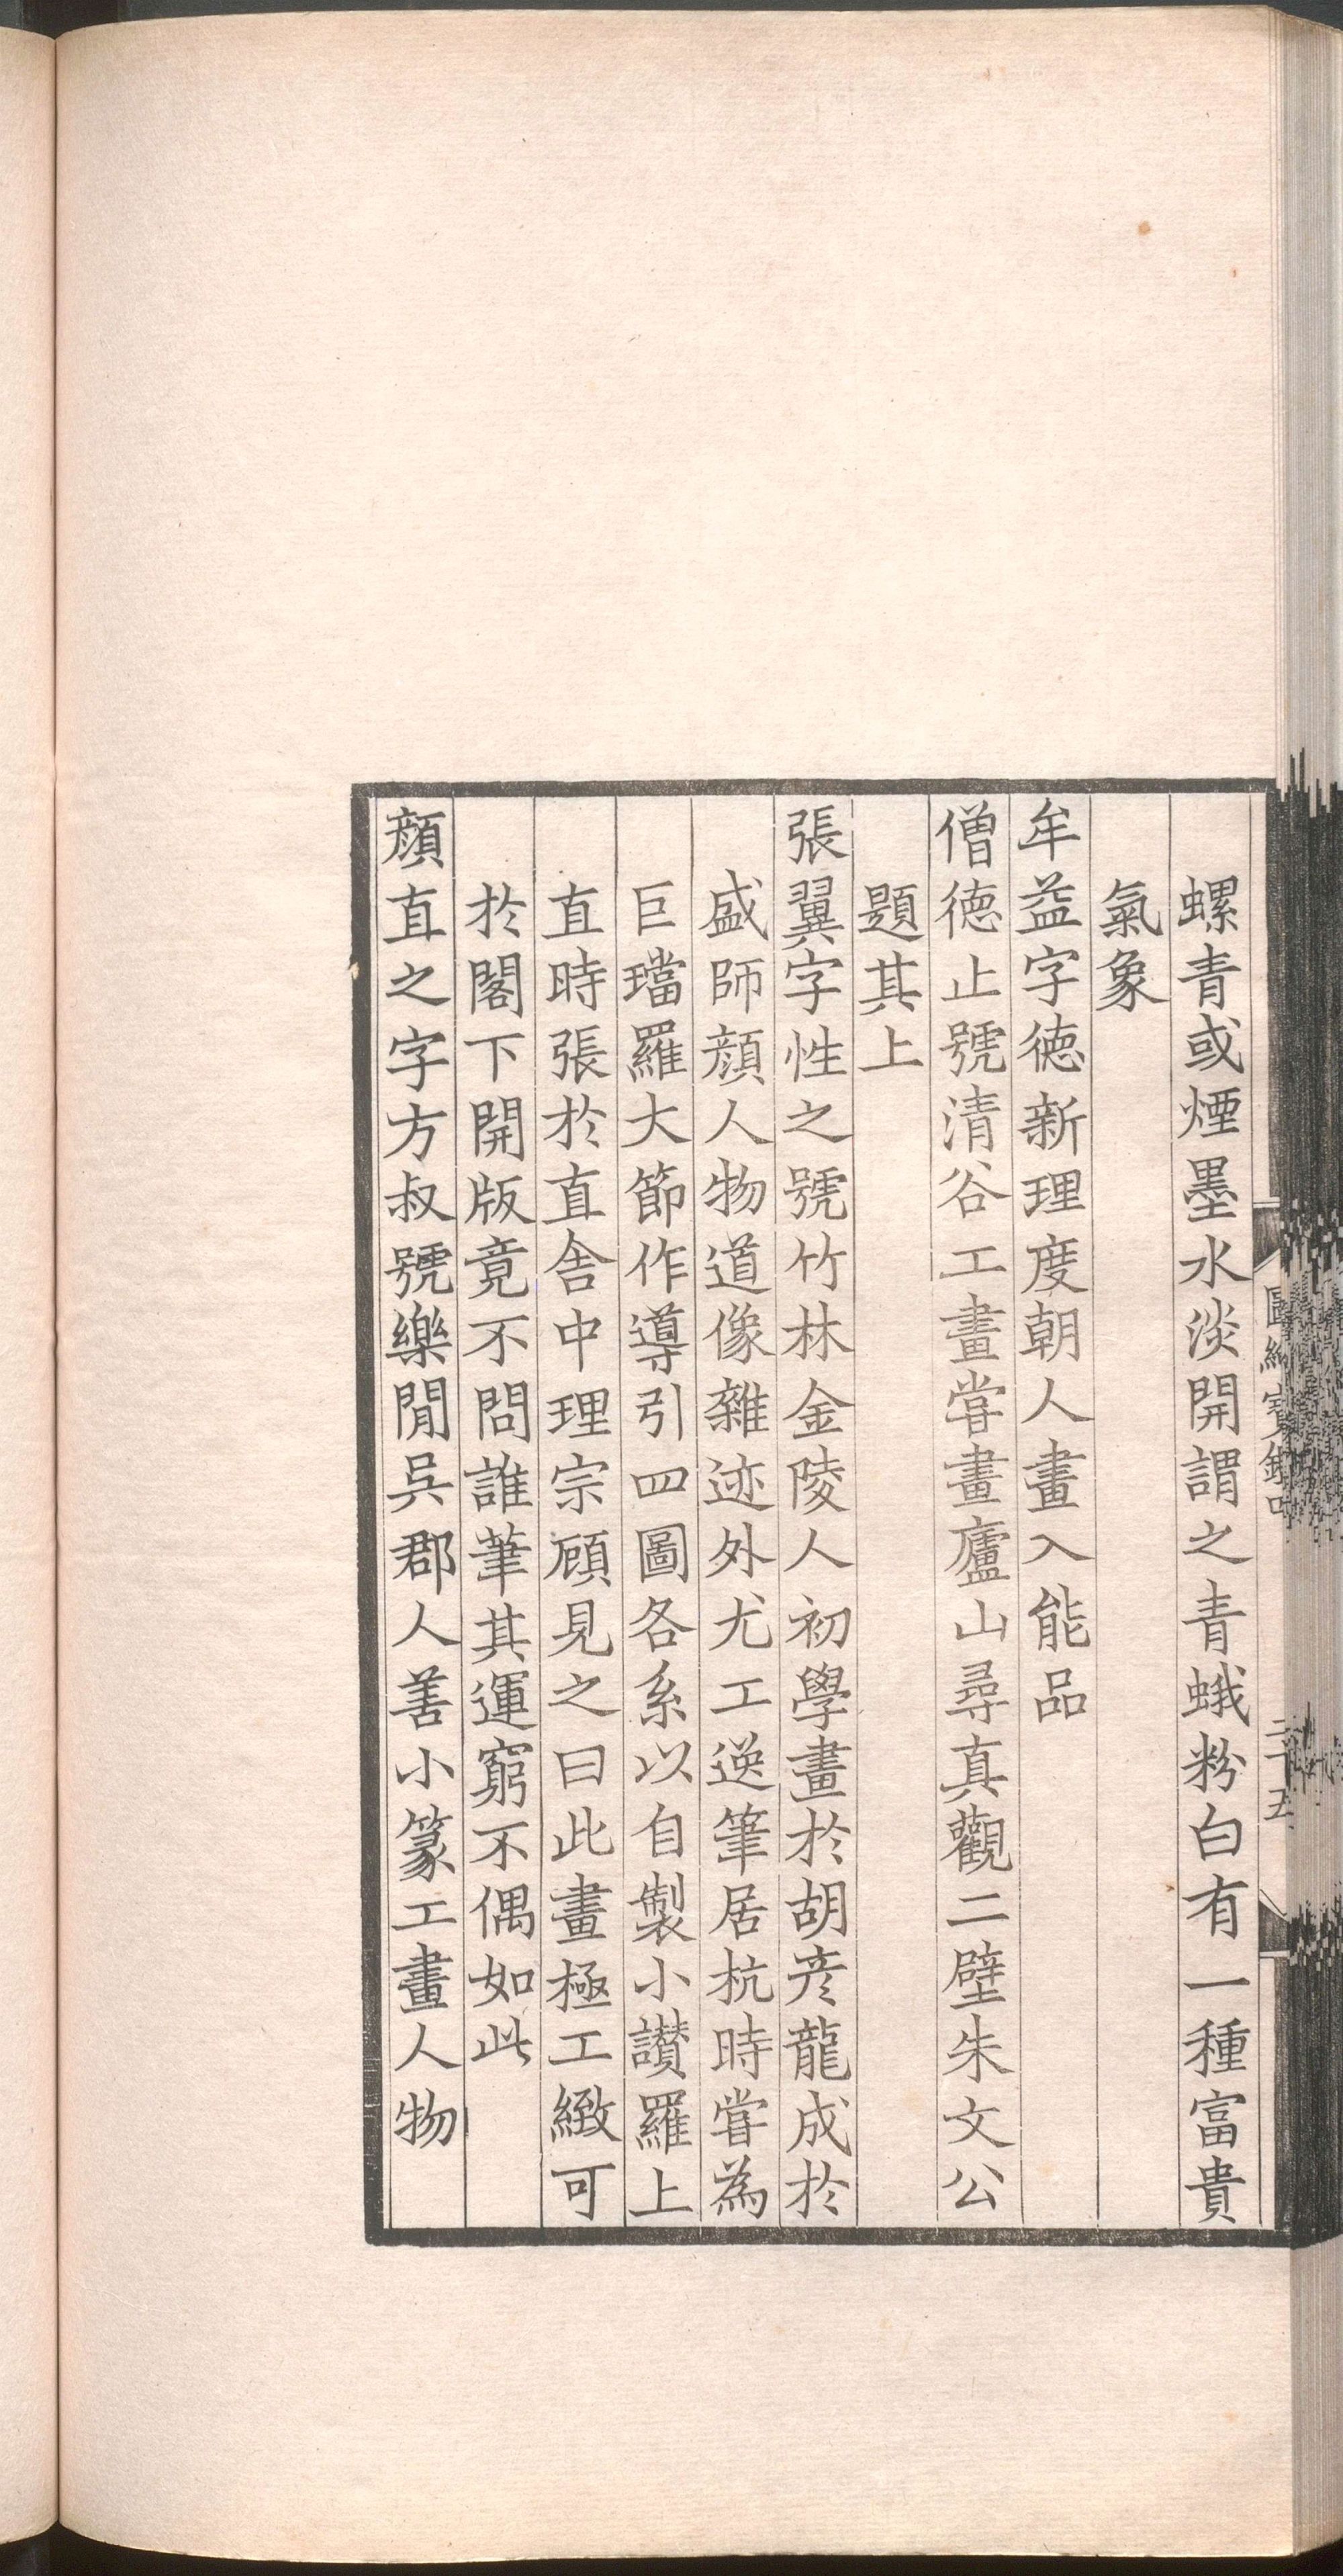 螺青或煙墨水淡開謂之青蛾粉白有一種富貴
氣象
牟益字德新理度朝人畫入能品
僧德止號清谷工畫嘗畫廬山尋真觀二壁朱文公
題其上
張翼字性之號竹林金陵人初學畫於胡彦龍成於
盛師顔人物道像雜迹外尤工逆筆居杭時嘗為
巨璫羅大節作導引四圖各系以自製小讃羅上
直時張於直舍中理宗顧見之曰此畫極工緻可
於閣下開版竟不問誰筆其運窮不偶如此
顔直之字方叔號樂閒吳郡人善小篆工畫人物
圖繪寳鑑四
二十五